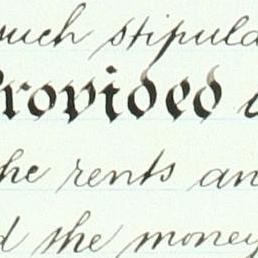 such stipula
Provided a
he rents an
d the money